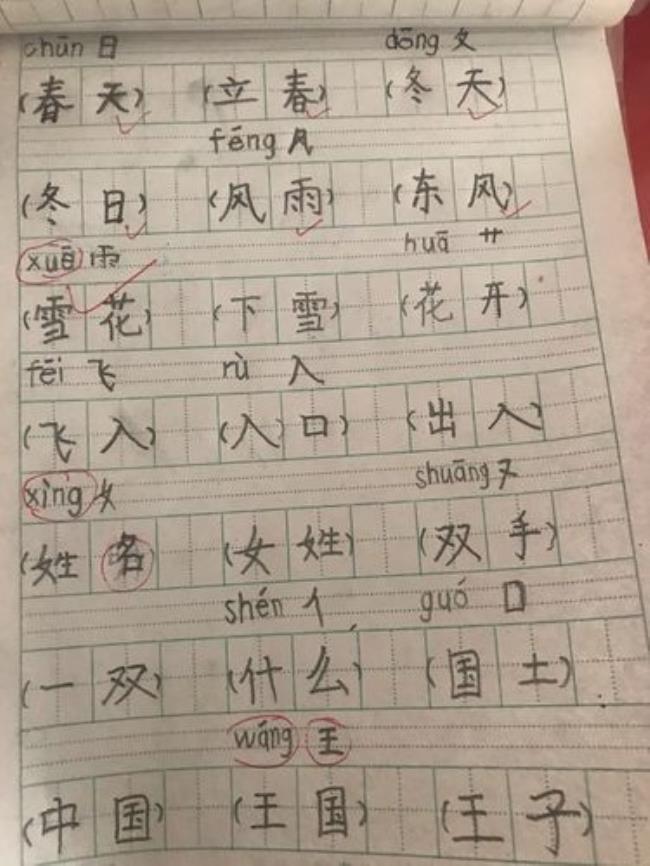 chūn 日 dōng 夂
(春天) (立春) (冬天)
fēng 风
(冬日) (风雨) (东风)
xuě 雨 huā 艹
(雪花) (下雪) (花开)
fēi 飞 rù 入
(飞入) (入口) (出入)
xìng 女 shuāng 又
(姓名) (女姓) (双手)
shén 亻 guó 囗
(一双) (什么) (国土)
wáng 王
(中国) (王国) (王子)